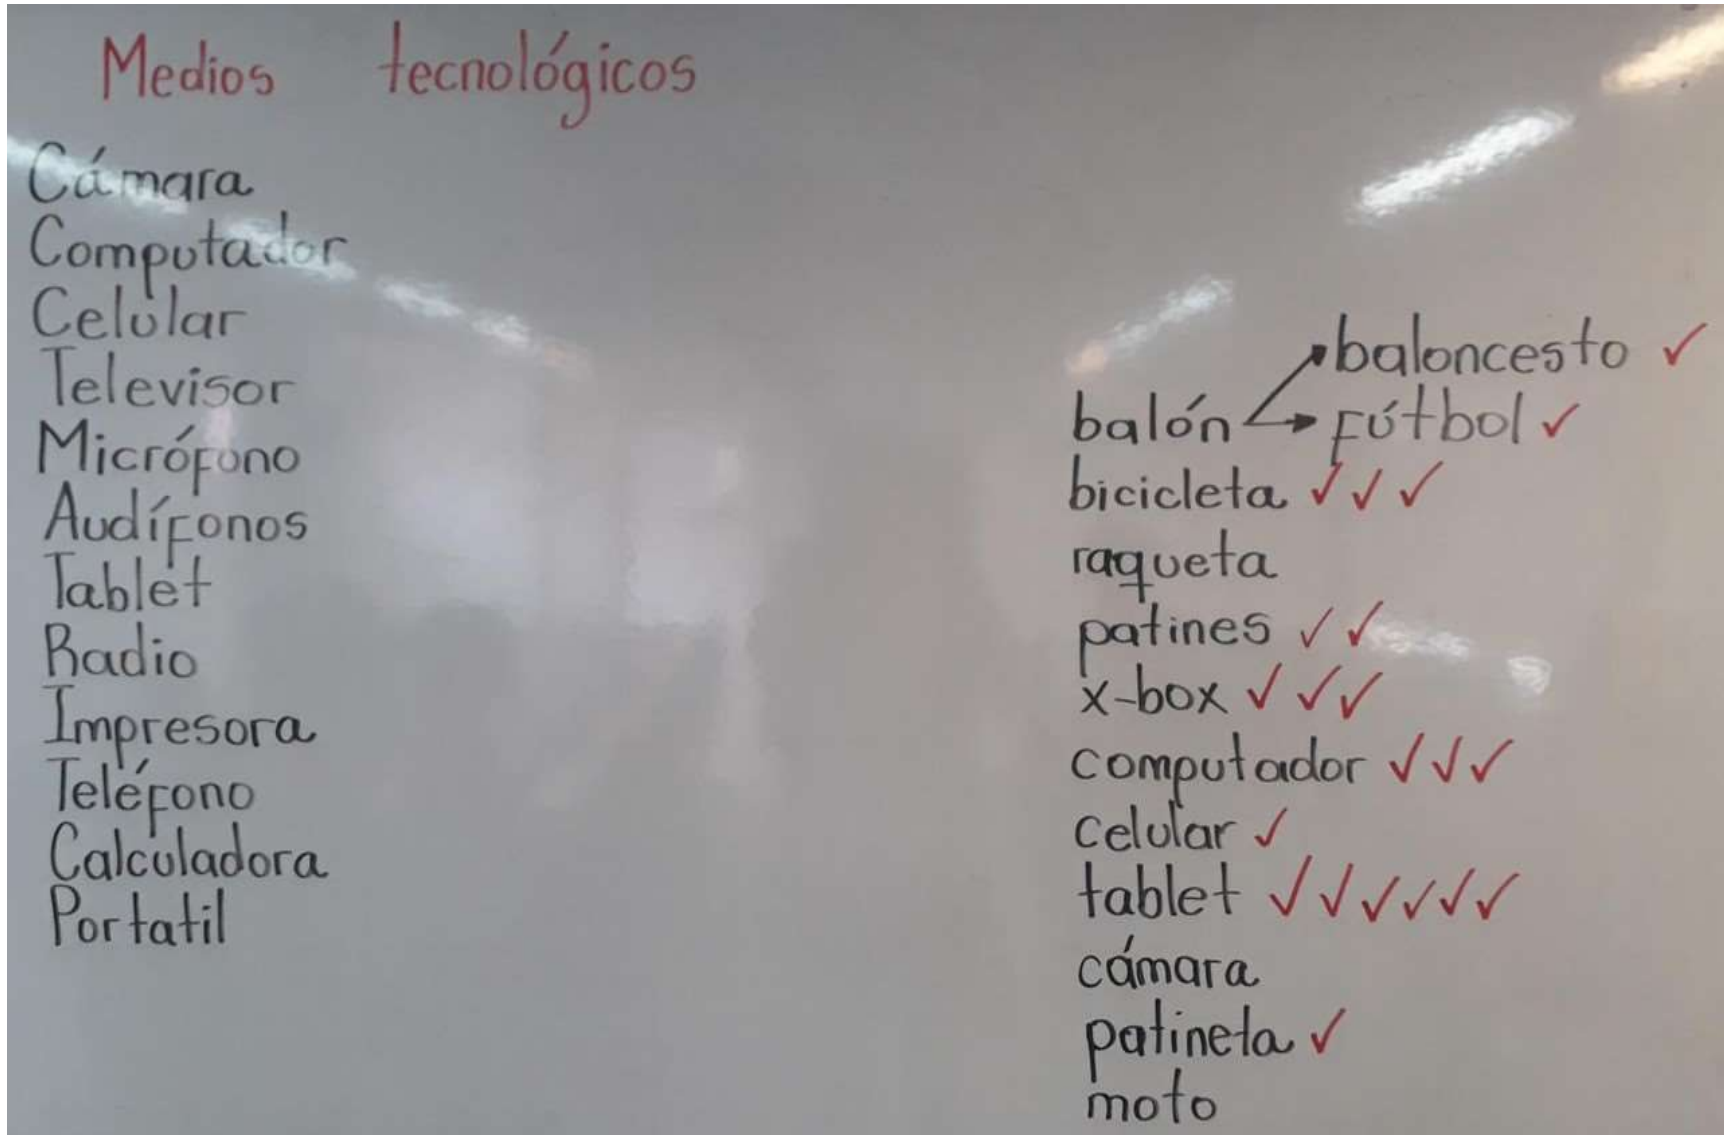 Medios tecnológicos
Cámara
Computador
Celular
Televisor
Micrófono
Audífonos
Tablet
Radio
Impresora
Teléfono
Calculadora
Portatil
baloncesto ✓
balón fútbol ✓
bicicleta ✓✓✓
raqueta
patines ✓✓
x-box ✓✓✓
computador ✓✓✓
celular ✓
tablet ✓✓✓✓✓✓
cámara
patineta ✓
moto